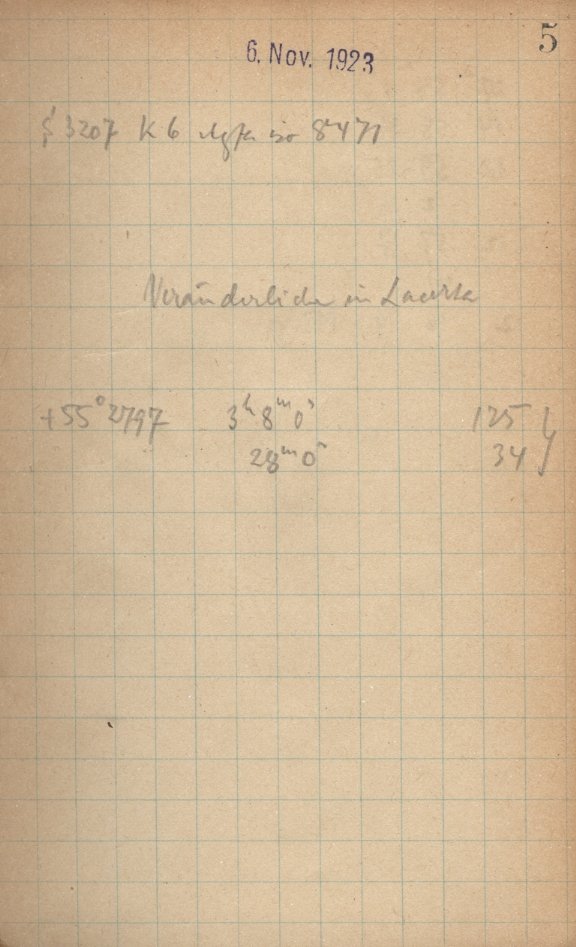 5
6. Nov. 1923
3207 K 6 8471
Veränderliche in Lacerta
+55° 2797 3ʰ 8ᵐ 0ˢ 125
28ᵐ 0ˢ 34